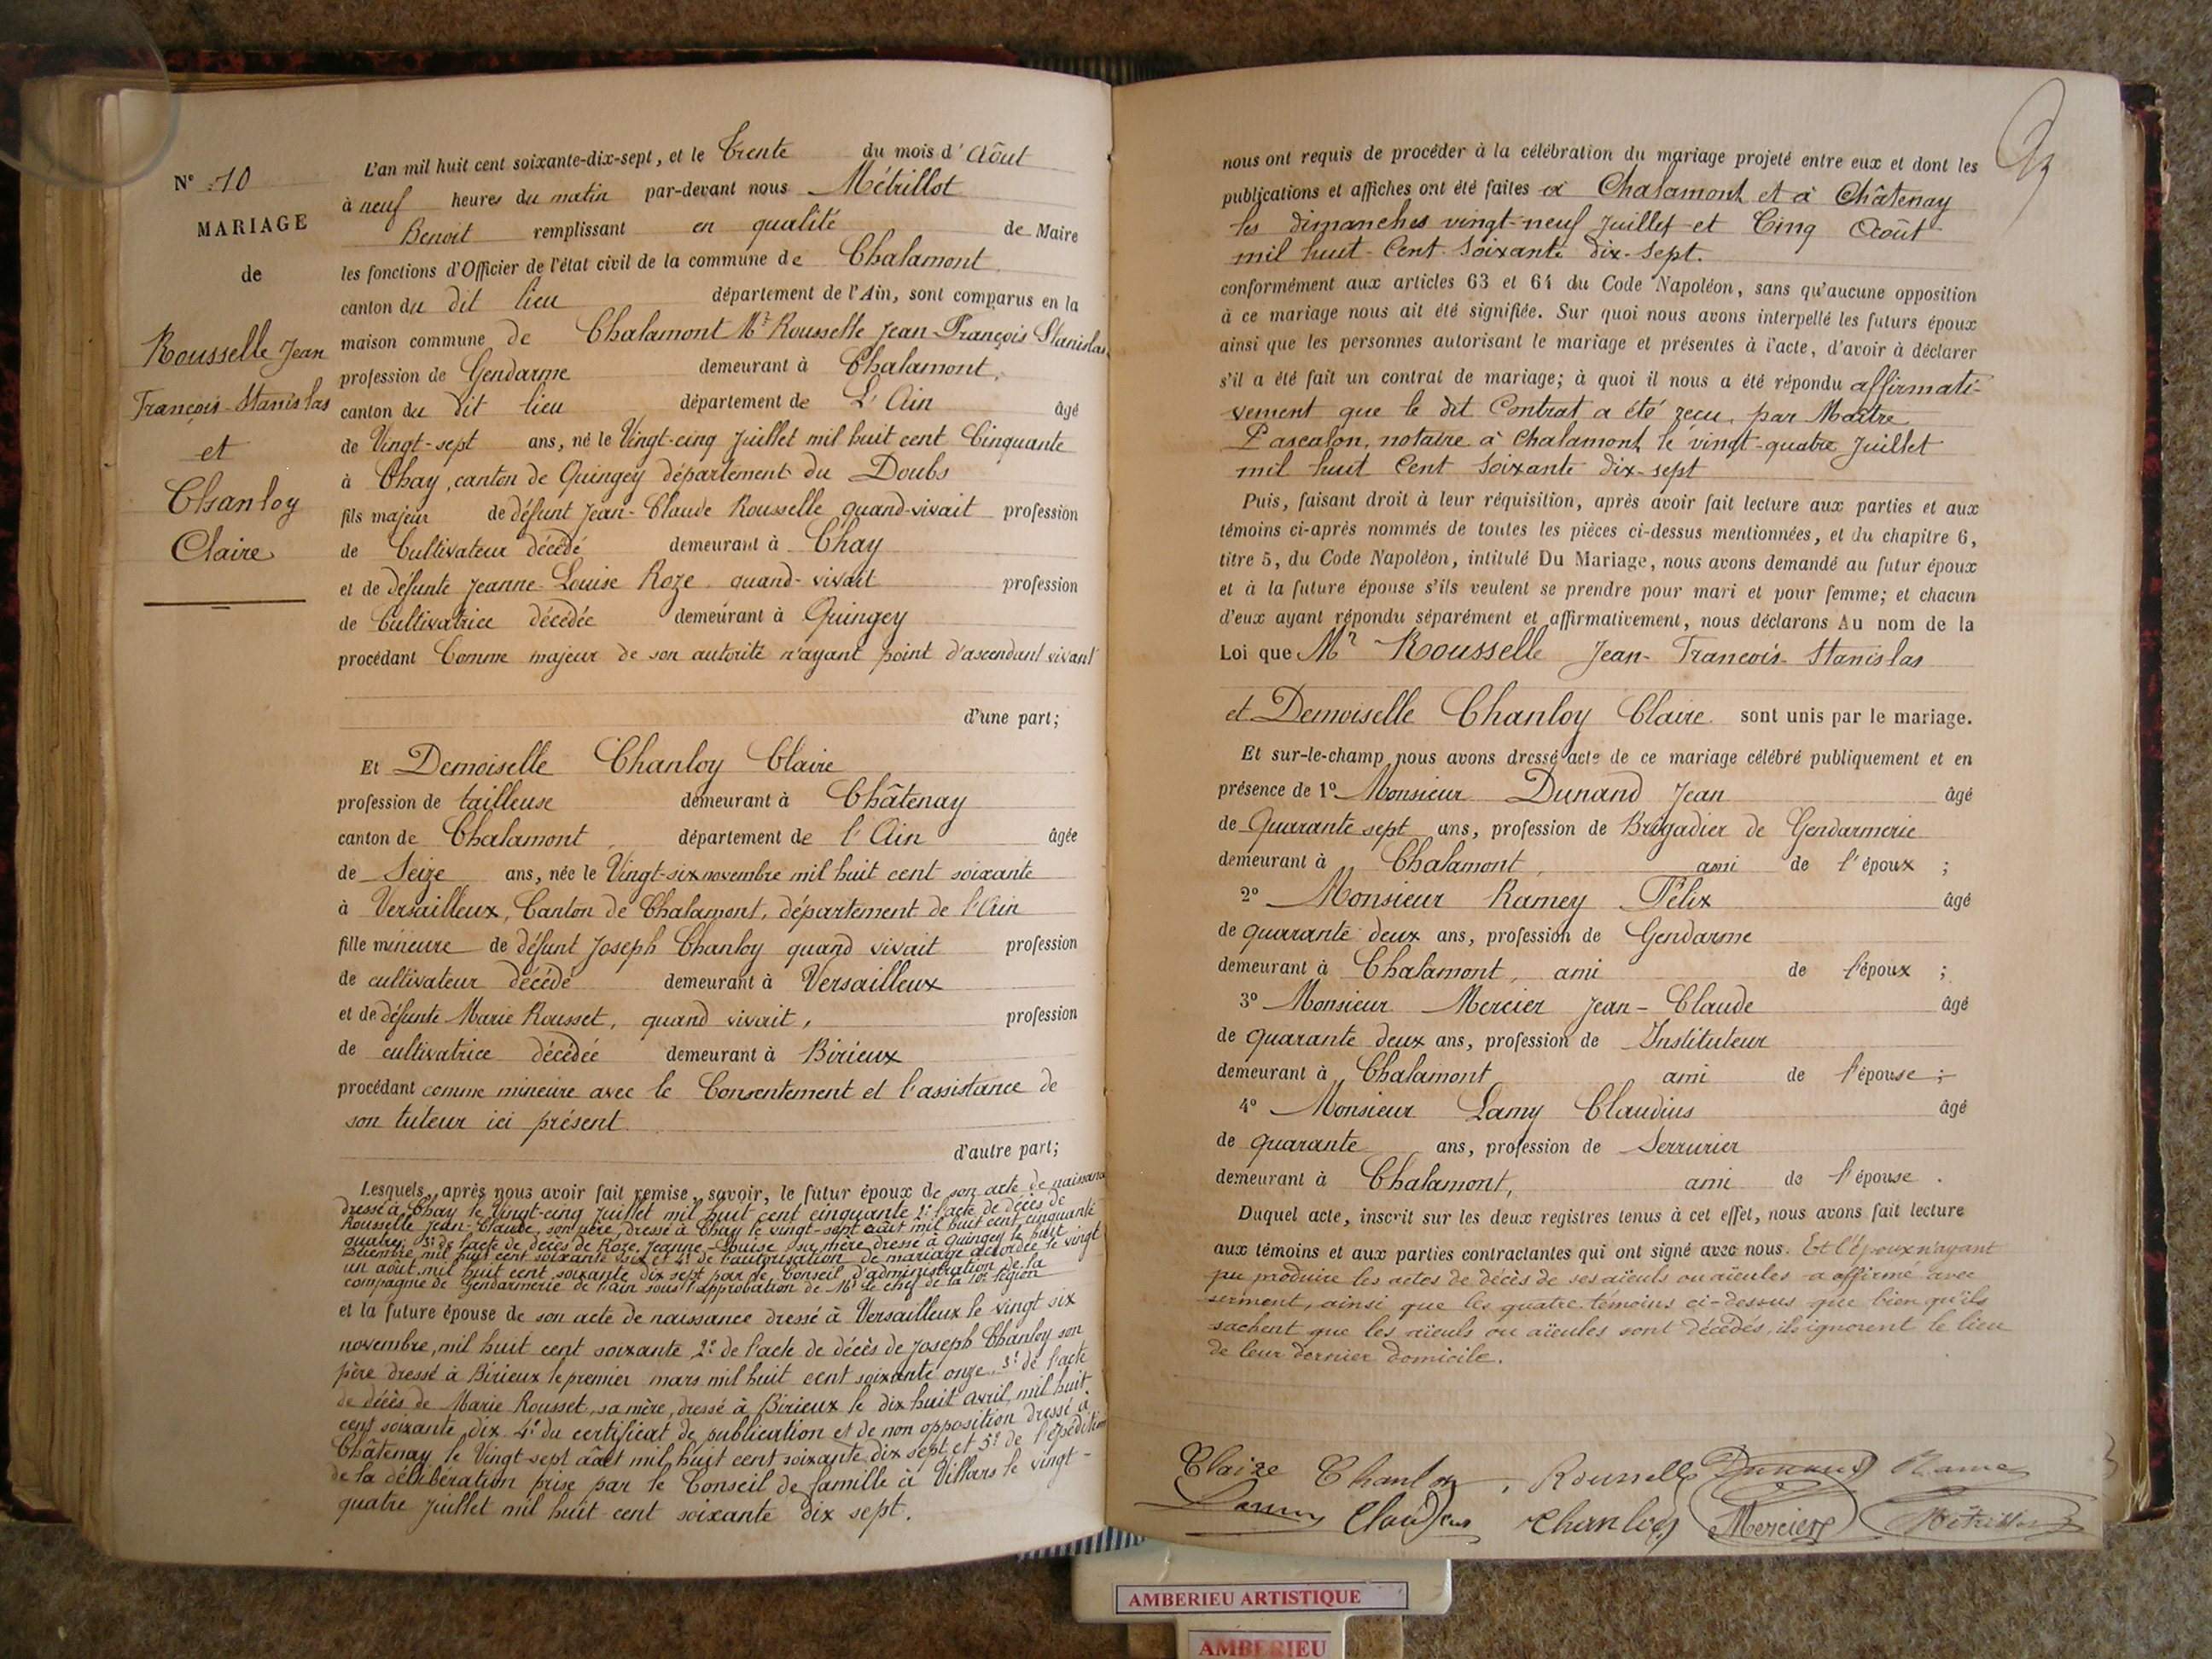 N° 10
MARIAGE
de
Rousselle Jean
François-Stanislas
et
Chanloy
Claire
L'an mil huit cent soixante-dix-sept, et le Trente du mois d'Août
à neuf heures du matin par-devant nous Métrillot
Benoit remplissant en qualité de Maire
les fonctions d'Officier de l'état civil de la commune de Chalamont
canton du dit lieu département de l'Ain, sont comparus en la
maison commune de Chalamont Mr Rousselle Jean-François Stanislas
profession de Gendarme demeurant à Chalamont,
canton du dit lieu département de L'Ain âgé
de Vingt-sept ans, né le Vingt-cinq Juillet mil huit cent Cinquante
à Chay, canton de Quingey département du Doubs
fils majeur de défunt Jean-Claude Rousselle quand-vivait profession
de Cultivateur décédé demeurant à Chay
et de défunte Jeanne-Louise Roze quand-vivait profession
de Cultivatrice décédée demeurant à Quingey
procédant Comme majeur de son autorité n'ayant point d'ascendant vivant
d'une part;
Et Demoiselle Chanloy Claire
profession de tailleuse demeurant à Châtenay
canton de Chalamont, département de l'Ain âgée
de Seize ans, née le Vingt-six novembre mil huit cent soixante
à Versailleux, Canton de Chalamont, département de l'Ain
fille mineure de défunt Joseph Chanloy quand vivait profession
de cultivateur décédé demeurant à Versailleux
et de défunte Marie Rousset, quand vivait, profession
de cultivatrice décédée demeurant à Birieux
procédant comme mineure avec le Consentement et l'assistance de
son tuteur ici présent.
d'autre part;
Lesquels, après nous avoir fait remise, savoir, le futur époux de son acte de naissance
dressé à Chay le Vingt-cinq Juillet mil huit cent cinquante 2° l'acte de décès de
Rousselle Jean-Claude, son père, dressé à Chay le vingt-sept août mil huit cent cinquante
quatre; 3° de l'acte de décès de Roze Jeanne-Louise sa mère dressé à Quingey le huit
Décembre mil huit cent soixante six et 4° de l'autorisation de mariage accordée le vingt
un août mil huit cent soixante dix sept par le Conseil d'administration de la
compagnie de Gendarmerie de l'ain sous l'approbation de Mr le chef de la 10e légion
et la future épouse de son acte de naissance dressé à Versailleux le vingt six
novembre, mil huit cent soixante 2° de l'acte de décès de Joseph Chanloy son
père dressé à Birieux le premier mars mil huit cent soixante onze. 3° de l'acte
de décès de Marie Rousset, sa mère, dressé à Birieux le dix huit avril, mil huit
cent soixante dix 4° du certificat de publication et de non opposition dressé à
Châtenay le Vingt-sept août mil huit cent soixante dix sept et 5° de l'expédition
de la délibération prise par le Conseil de famille à Villars le vingt-
quatre Juillet mil huit-cent soixante dix sept.
nous ont requis de procéder à la célébration du mariage projeté entre eux et dont les
publications et affiches ont été faites à Chalamont et à Châtenay
les dimanches vingt-neuf Juillet et Cinq Août
mil huit-Cent-Soixante dix-sept.
conformément aux articles 63 et 64 du Code Napoléon, sans qu'aucune opposition
à ce mariage nous ait été signifiée. Sur quoi nous avons interpellé les futurs époux
ainsi que les personnes autorisant le mariage et présentes à l'acte, d'avoir à déclarer
s'il a été fait un contrat de mariage; à quoi il nous a été répondu affirmati-
vement que le dit Contrat a été reçu par Maître
Pascalon, notaire à Chalamont, le vingt-quatre Juillet
mil huit Cent Soixante dix-sept
Puis, faisant droit à leur réquisition, après avoir fait lecture aux parties et aux
témoins ci-après nommés de toutes les pièces ci-dessus mentionnées, et du chapitre 6,
titre 5, du Code Napoléon, intitulé Du Mariage, nous avons demandé au futur époux
et à la future épouse s'ils veulent se prendre pour mari et pour femme; et chacun
d'eux ayant répondu séparément et affirmativement, nous déclarons Au nom de la
Loi que Mr Rousselle Jean-François-Stanislas
et Demoiselle Chanloy Claire sont unis par le mariage.
Et sur-le-champ nous avons dressé acte de ce mariage célébré publiquement et en
présence de 1° Monsieur Dunand Jean âgé
de Quarante sept ans, profession de Brigadier de Gendarmerie
demeurant à Chalamont, ami de l'époux ;
2° Monsieur Ramey Félix âgé
de quarante deux ans, profession de Gendarme
demeurant à Chalamont, ami de l'époux ;
3° Monsieur Mercier Jean-Claude âgé
de quarante deux ans, profession de Instituteur
demeurant à Chalamont ami de l'épouse ;
4° Monsieur Lamy Claudius âgé
de quarante ans, profession de Serrurier
demeurant à Chalamont, ami de l'épouse .
Duquel acte, inscrit sur les deux registres tenus à cet effet, nous avons fait lecture
aux témoins et aux parties contractantes qui ont signé avec nous. Et l'époux n'ayant
pu produire les actes de décès de ses aïeuls ou aïeules a affirmé avec
serment, ainsi que les quatre témoins ci-dessus que bien qu'ils
sachent que les aïeuls ou aïeules sont décédés, ils ignorent le lieu
de leur dernier domicile.
Claire Chanloy Rousselle Dunand Ramey
Lamy Claudius Chanloy Mercier Métrillot
AMBERIEU ARTISTIQUE
AMBERIEU